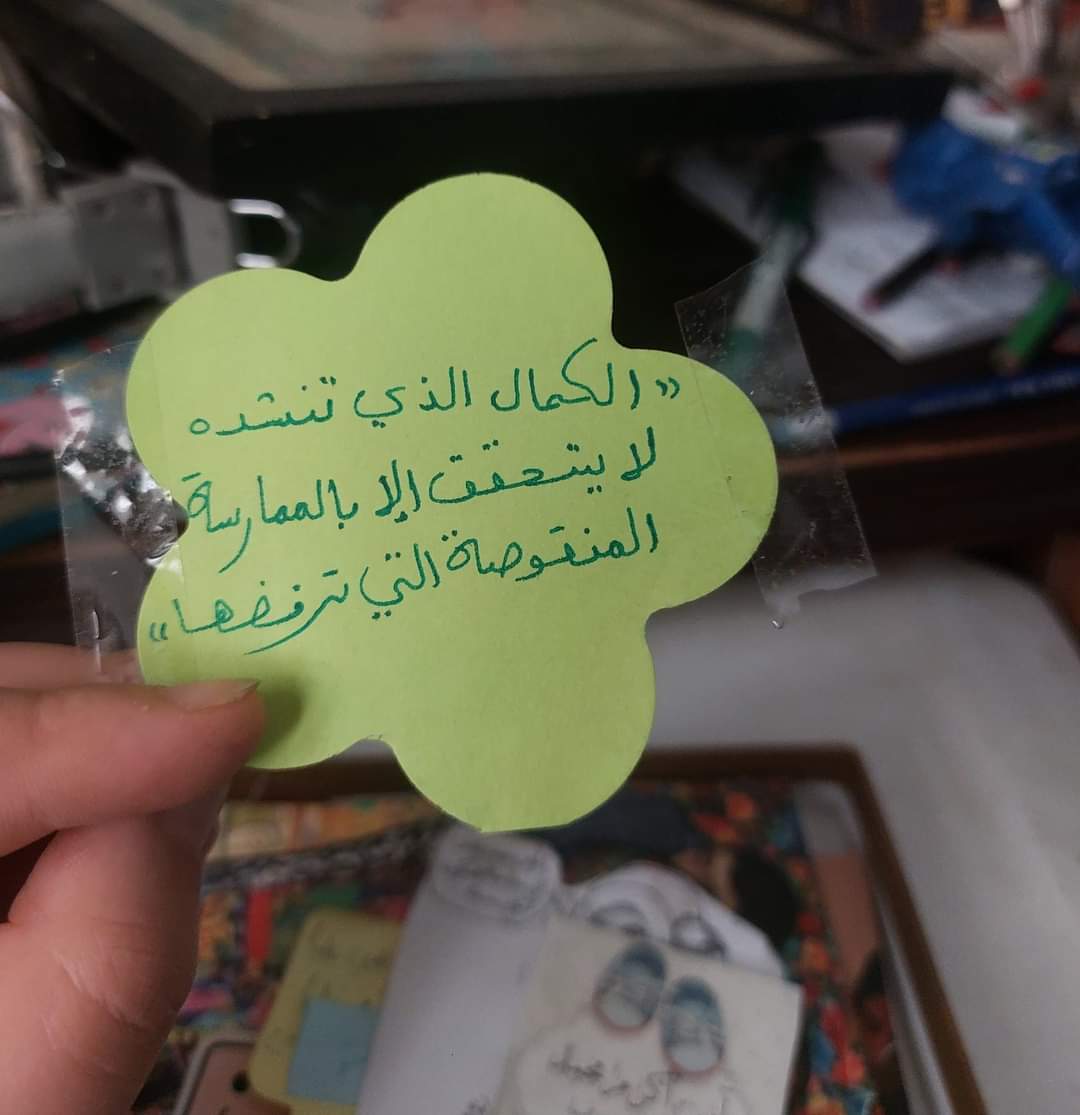 «الكمال الذي تنشده
لا يتحقق إلا بالممارسة
المنقوصة التي ترفضها»